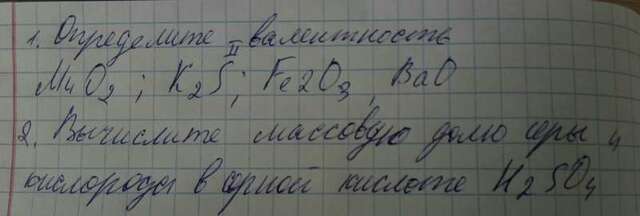 1. Определите валентность
II
MnO2; K2S; Fe2O3, BaO
2. Вычислите массовую долю серы и
кислорода в серной кислоте H2SO4